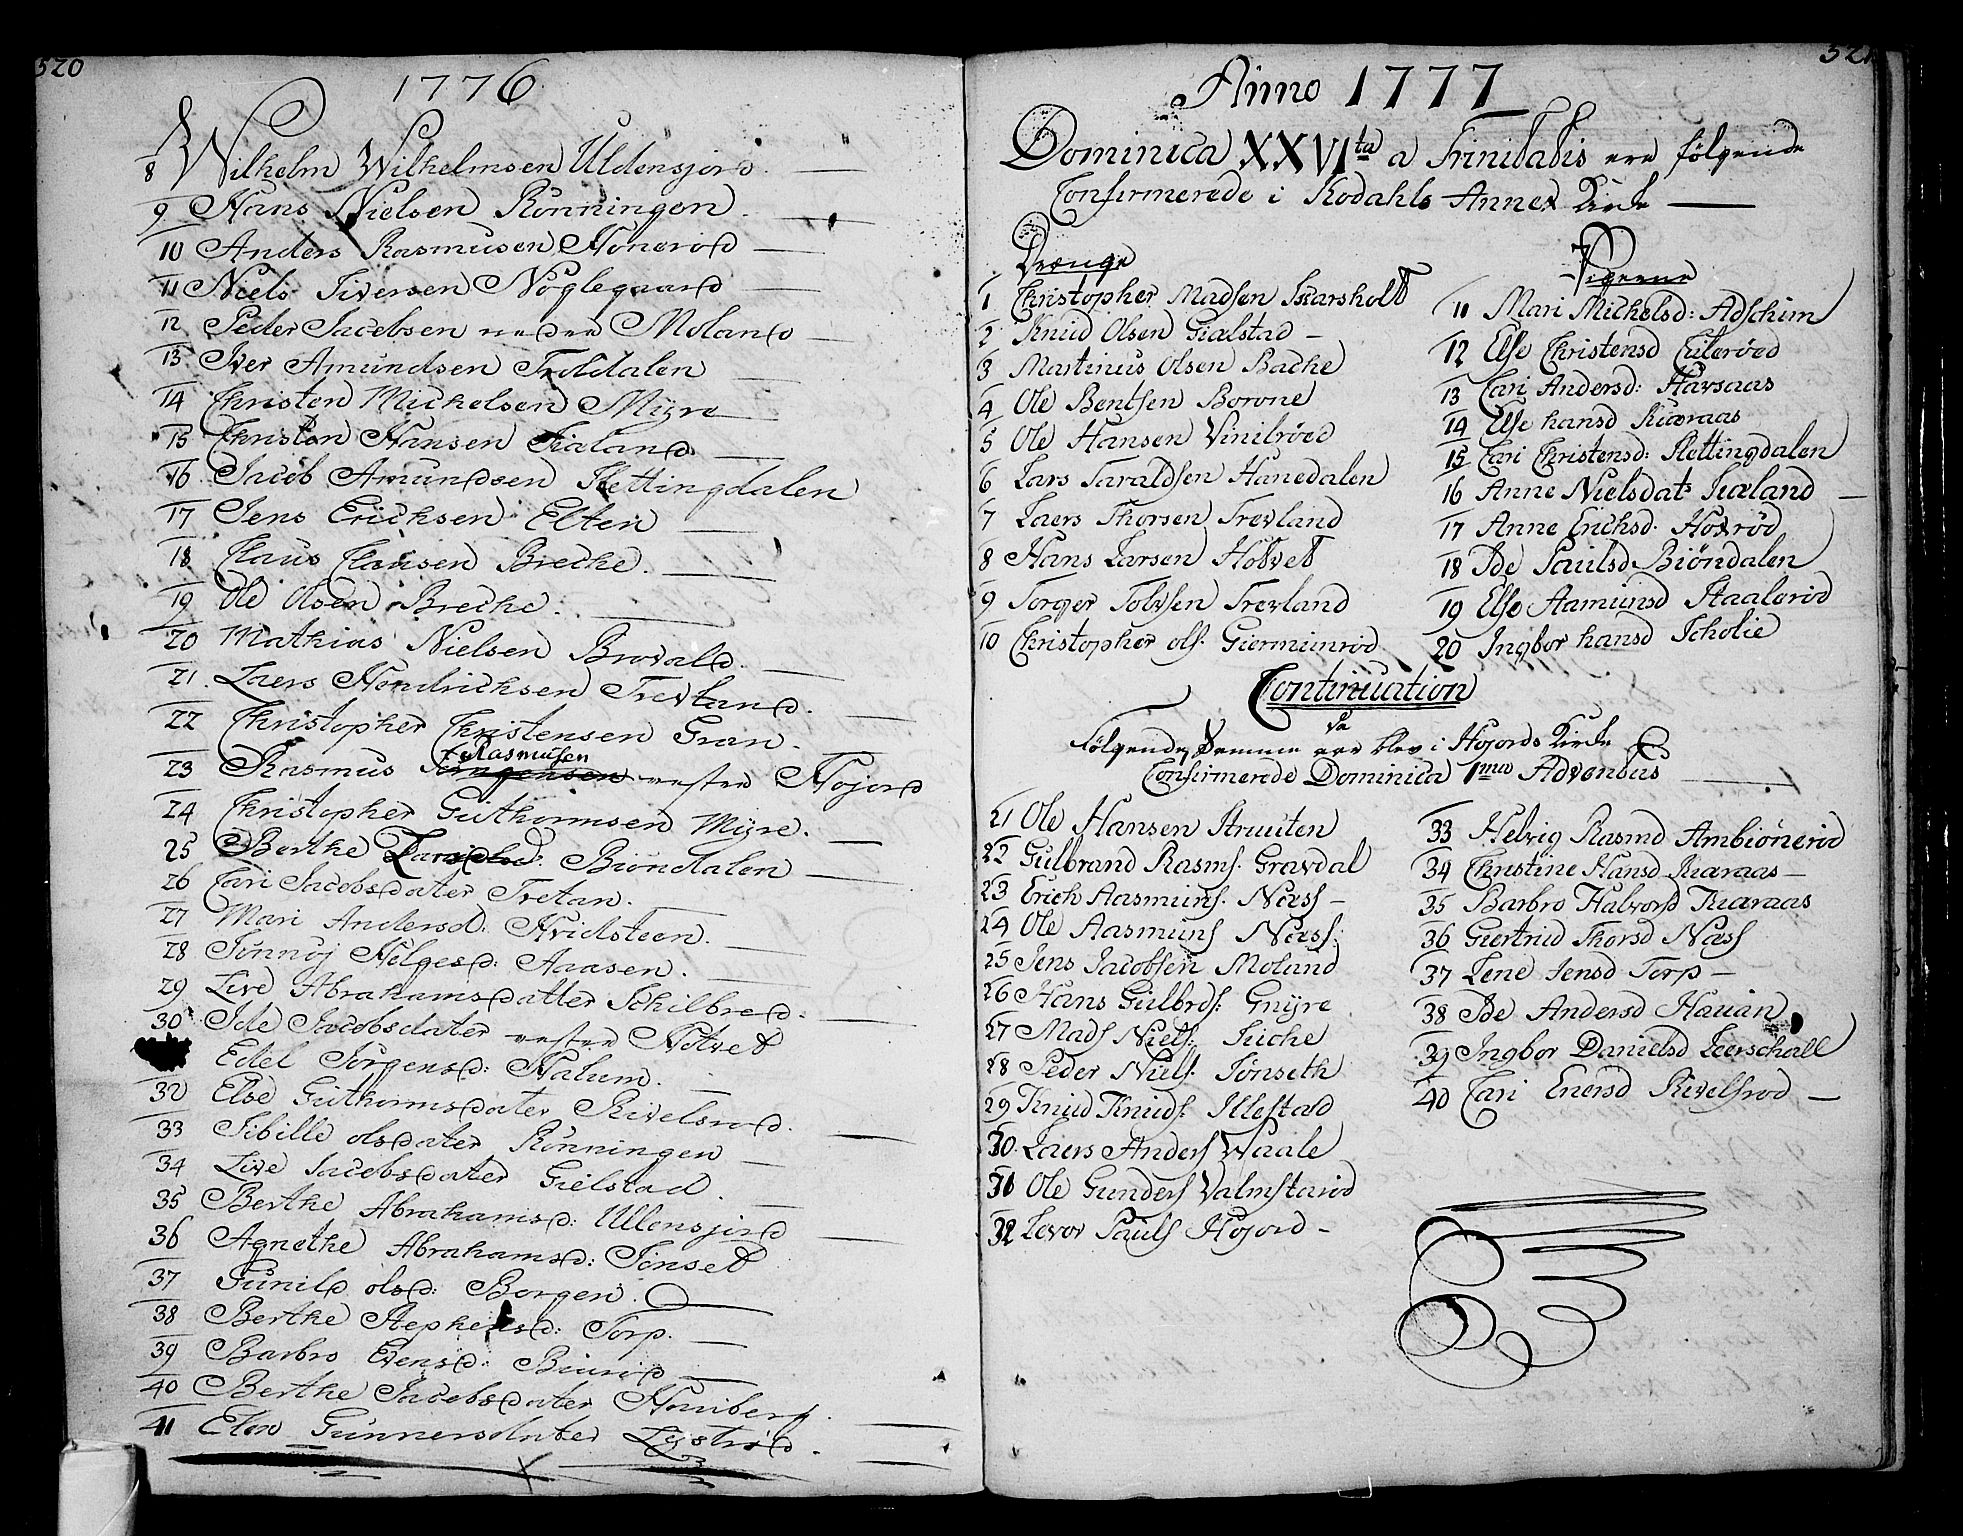 520
1776
8 Wilhelm Wilhelmsen Uldensjord
9 Hans Nielsen Rønningen
10 Anders Rasmusen Honerød
11 Niels Siversen Nøglegaard
12 Peder Jacobsen neder Moland
13 Iver Amundsen Troldalen
14 Christen Michelsen Myre
15 Christen Hansen Kialand
16 Jacob Amundsen Slettingdalen
17 Jens Erichsen Elten
18 Claus Clausen Breche
19 Ole Olsen Breche
20 Mathias Nielsen Brovald
21 Laers Hendrichsen Trevland
22 Christopher Christensen Gran
Rasmusen
23 Rasmus vestre Hojord
24 Christopher Guthormsen Myre
25 Berthe Larsd: Biøndalen
26 Cari Jacobsdater Tretan
27 Mari Andersd: Hvidsteen
28 Sønnøj Helgesd: Aaasen
29 Live Abrahamsdatter Schilbred
30 Ide Jacobsdater vestre Hotvet
Edel Jørgensd: Halum
32 Else Guthormsdater Rivelsrød
33 Sibille olsdater Rønningen
34 Live Jacobsdater Gielstad
35 Berthe Abrahamsd: Ullensjord
36 Agnethe Abrahamsd: Sønset
37 Gunild olsd: Borgen
38 Berthe Stephensd: Torp
39 Barbro Evensd: Biurød
40 Berthe Jacobsdater Hauberg
41 Elen Gunnersdater Lystrød
521
Anno 1777
Dominica XXVIta a Trinitatis ere følgende
Confirmerede i Kodahls Annex Kirke
Drenge
1 Christopher Madsen Skarsholt
2 Knud Olsen Gialstad
3 Martinus Olsen Bache
4 Ole Bentsen Borone
5 Ole Hansen Vinilrøed
6 Lars Taraldsen Hanedalen
7 Laers Thorsen Trevland
8 Hans Larsen Hotvet
9 Torger Tolvsen Trevland
10 Christopher ols: Giermunrød
Pigerne
11 Mari Michelsd: Adschim
12 Else Christensd Eilerøed
13 Cari Andersd: Havsaas
14 Else hansd Kiæraas
15 Cari Christensd: Slettingdalen
16 Anne Nielsdatr Kiæland
17 Anne Erichsd. Hoxrød
18 Ide Paulsd Biøndalen
19 Else Aamunsd Staalerød
20 Ingbor hansd Scholie
Continuation
da
Følgende Femme ere blev i Hojords Kirke
Confirmerede Dominica 1ma Adventus
21 Ole Hansen Struten
22 Gulbrand Rasms. Gravdal
23 Erich Aasmuns. Næss
24 Ole Aasmuns Næss:
25 Jens Jacobsen Moland
26 Hans Gulbrds: Gnyre
27 Mads Niels: Suche
28 Peder Niels. Sønseth
29 Knud Knuds. Illestad
30 Laers Anders Waale
31 Ole Gunders Valmstarød
32 Levor Pauls Hojord
33 Helvig Rasmd Ambiønerød
34 Christine Hansd Kiæraas
35 Barbro Halvorsd Kiæraas
36 Giertrud Thorsd Næss
37 Lene Jensd Torp
38 Ide Andersd Hauan
39 Ingbor Danielsd Leerschall
40 Cari Enersd Rivelsrød